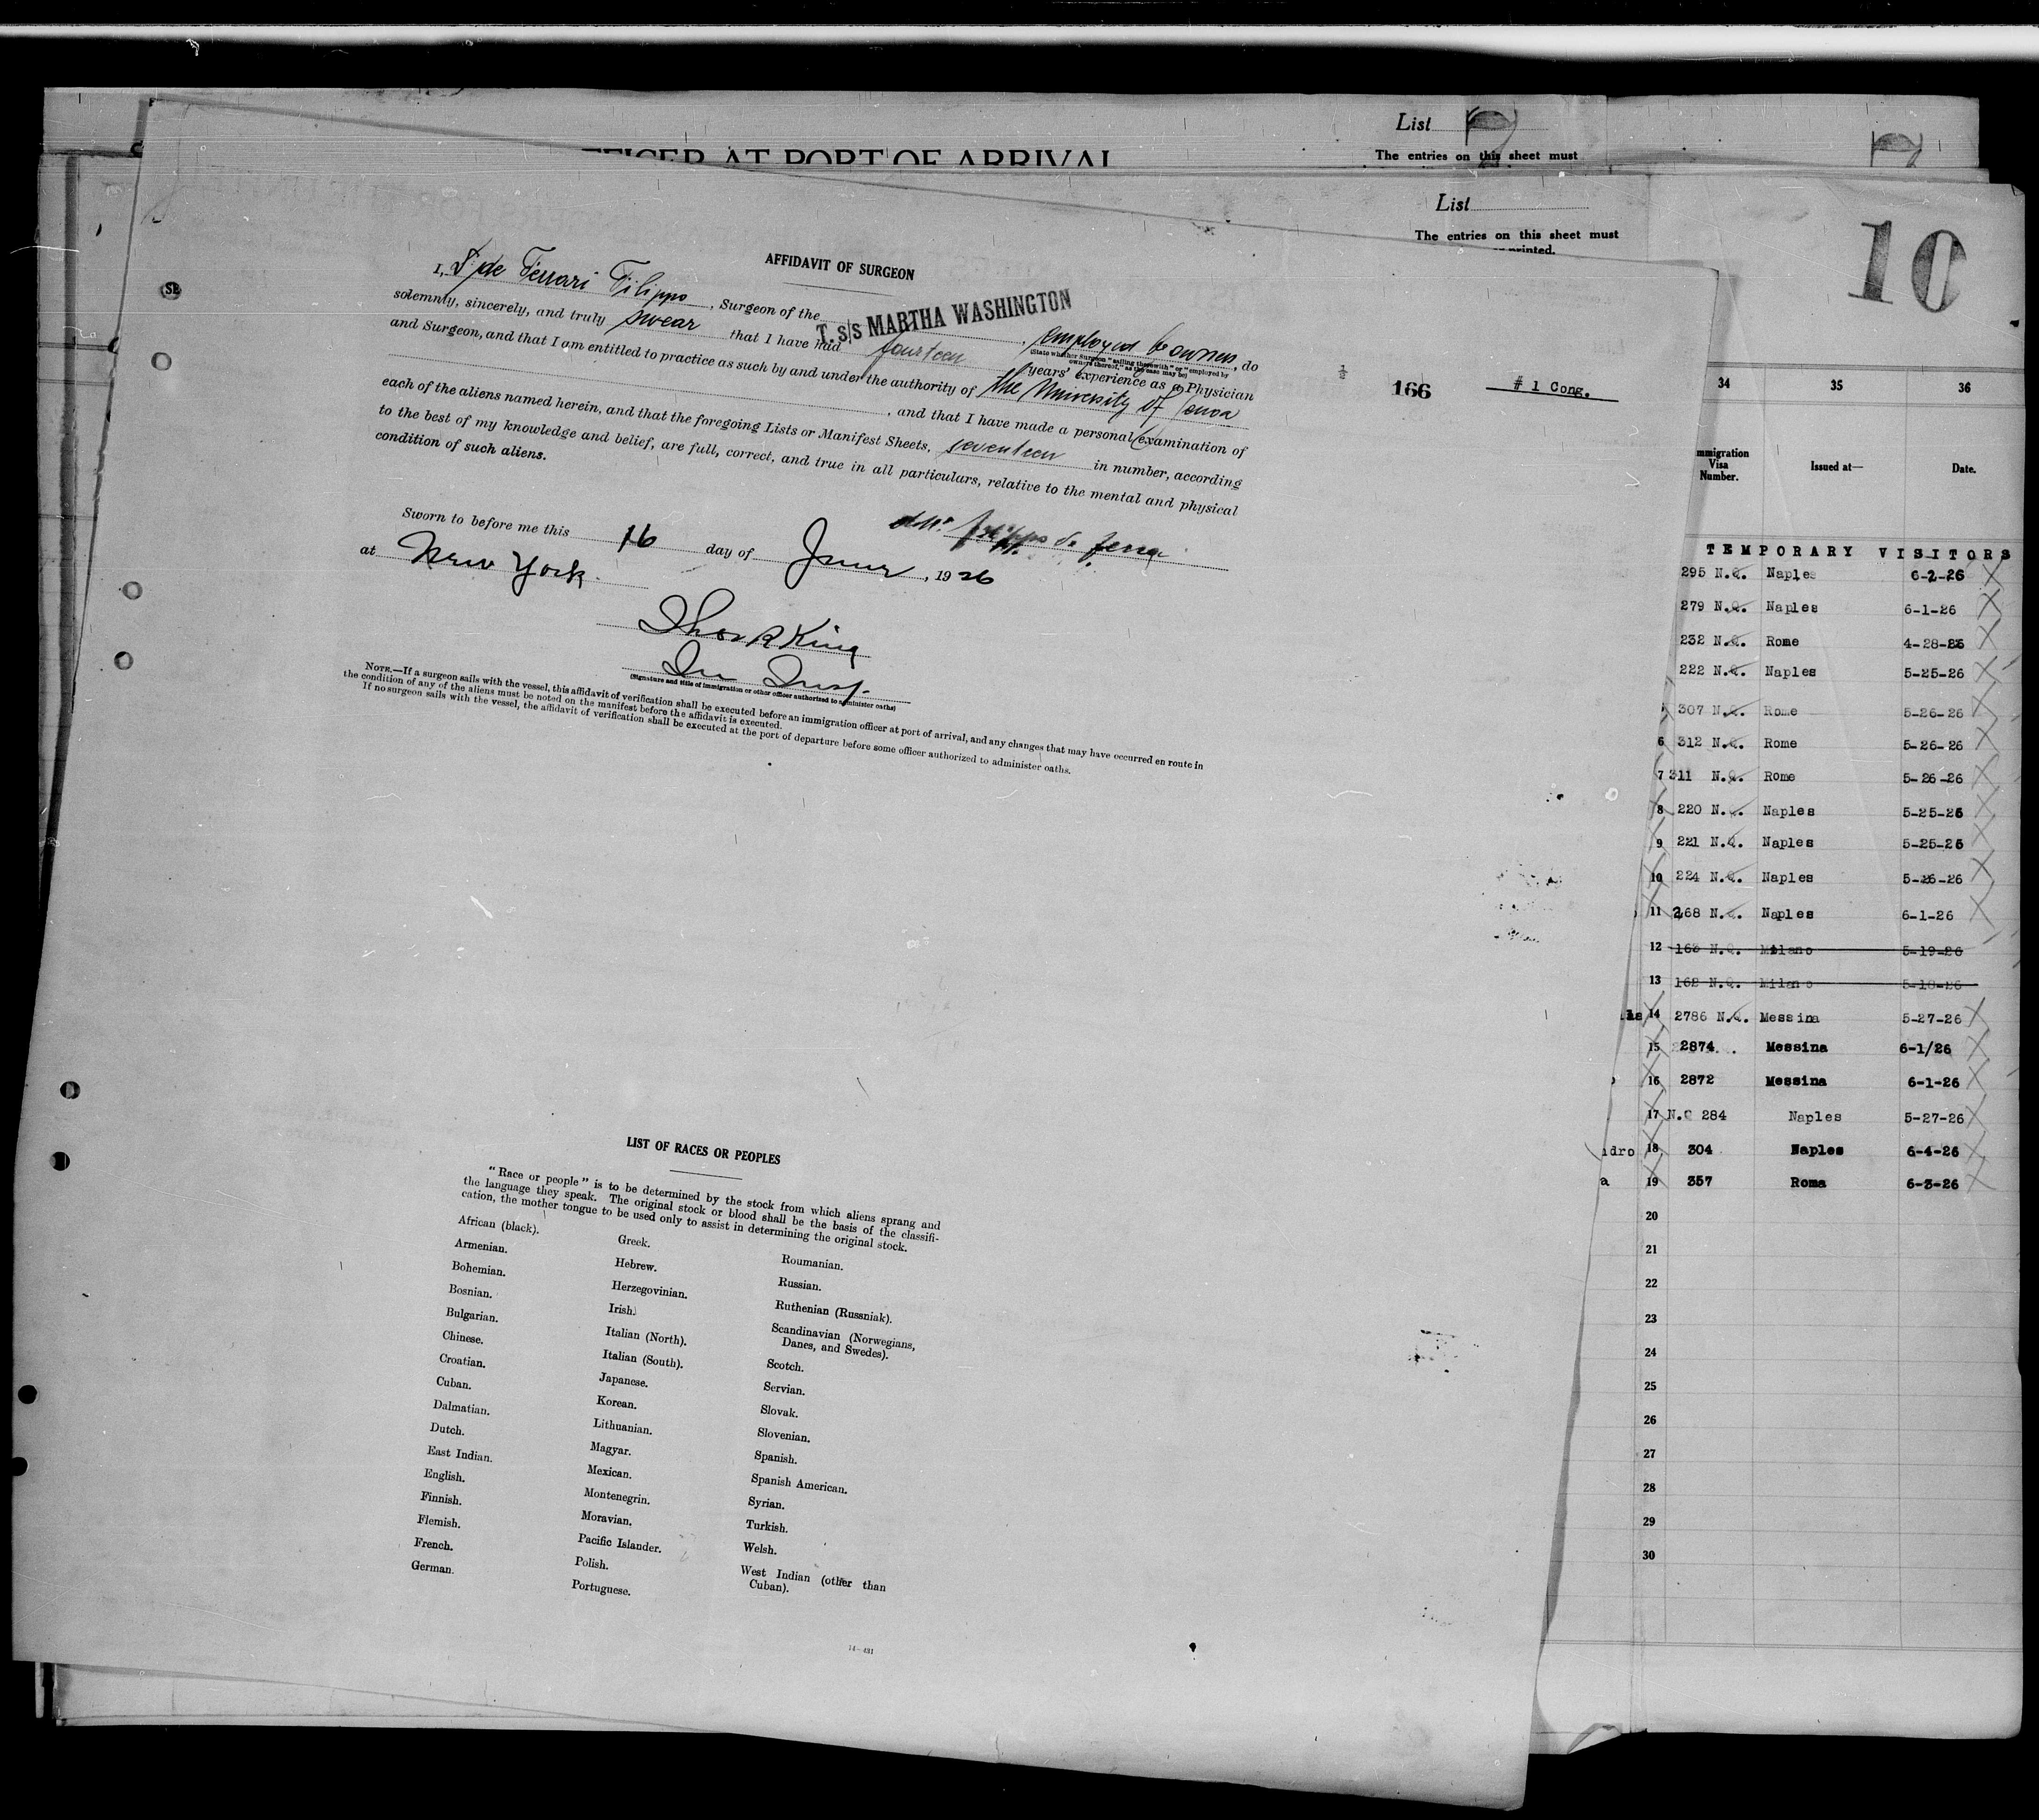 List
OFFICER AT PORT OF ARRIVAL
The entries on this sheet must
List
The entries on this sheet must
or printed.
10
AFFIDAVIT OF SURGEON
I, de Ferrari Filippo, Surgeon of the T.s/s MARTHA WASHINGTON, employed b owners, do
(State whether Surgeon "sailing therewith" or "employed by
owners thereof," as the case may be)
solemnly, sincerely, and truly swear that I have had fourteen years' experience as a Physician
and Surgeon, and that I am entitled to practice as such by and under the authority of the University of Genoa
, and that I have made a personal examination of
each of the aliens named herein, and that the foregoing Lists or Manifest Sheets, seventeen in number, according
to the best of my knowledge and belief, are full, correct, and true in all particulars, relative to the mental and physical
condition of such aliens.
Sworn to before me this 16 day of June, 1926
at New York.
Thos R King
Im Insp.
(Signature and title of immigration or other officer authorized to administer oaths)
NOTE.—If a surgeon sails with the vessel, this affidavit of verification shall be executed before an immigration officer at port of arrival, and any changes that may have occurred en route in
the condition of any of the aliens must be noted on the manifest before the affidavit is executed.
If no surgeon sails with the vessel, the affidavit of verification shall be executed at the port of departure before some officer authorized to administer oaths.
LIST OF RACES OR PEOPLES
"Race or people" is to be determined by the stock from which aliens sprang and
the language they speak. The original stock or blood shall be the basis of the classifi-
cation, the mother tongue to be used only to assist in determining the original stock.
African (black).
Armenian.
Bohemian.
Bosnian.
Bulgarian.
Chinese.
Croatian.
Cuban.
Dalmatian.
Dutch.
East Indian.
English.
Finnish.
Flemish.
French.
German.
Greek.
Hebrew.
Herzegovinian.
Irish.
Italian (North).
Italian (South).
Japanese.
Korean.
Lithuanian.
Magyar.
Mexican.
Montenegrin.
Moravian.
Pacific Islander.
Polish.
Portuguese.
Roumanian.
Russian.
Ruthenian (Russniak).
Scandinavian (Norwegians,
Danes, and Swedes).
Scotch.
Servian.
Slovak.
Slovenian.
Spanish.
Spanish American.
Syrian.
Turkish.
Welsh.
West Indian (other than
Cuban).
14—431
166
# 1 Cong.
34 35 36
Immigration
Visa
Number.
Issued at—
Date.
TEMPORARY VISITORS
295 N.Q. Naples 6-2-26
279 N.Q. Naples 6-1-26
232 N.Q. Rome 4-28-26
222 N.Q. Naples 5-25-26
307 N.Q. Rome 5-26-26
6 312 N.Q. Rome 5-26-26
7 311 N.Q. Rome 5-26-26
8 220 N.Q. Naples 5-25-26
9 221 N.Q. Naples 5-25-26
10 224 N.Q. Naples 5-26-26
11 268 N.Q. Naples 6-1-26
12 163 N.Q. Milano 5-19-26
13 162 N.Q. Milano 5-18-26
14 2786 N.Q. Messina 5-27-26
15 2874 Messina 6-1/26
16 2872 Messina 6-1-26
17 N.Q 284 Naples 5-27-26
idro 18 304 Naples 6-4-26
a 19 357 Roma 6-3-26
20
21
22
23
24
25
26
27
28
29
30